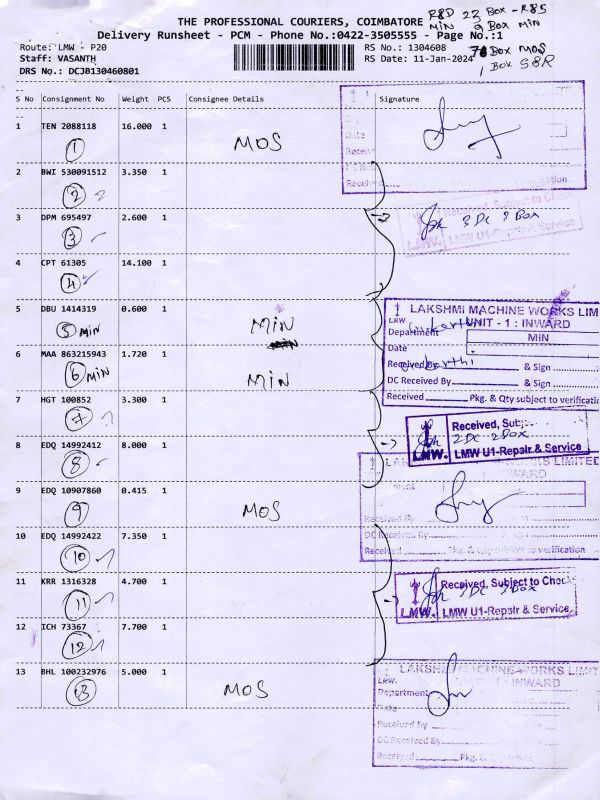 THE PROFESSIONAL COURIERS, COIMBATORE
R&D 22 Box - R&S
Min 9 Box Min
Delivery Runsheet - PCM - Phone No.:0422-3505555 - Page No.:1
Route: LMW - P20
RS No.: 1304608
Box MOS
Staff: VASANTH
RS Date: 11-Jan-2024
1 Box S&R
DRS No.: DCJB130460801
S No Consignment No Weight PCS Consignee Details Signature
1 TEN 2088118 16.000 1 MOS
1
2 BWI 530091512 3.350 1
2
3 DPM 695497 2.600 1
3
Received, Subject to Check
3 DC 3 Box
LMW. LMW U1-Repair & Service
4 CPT 61305 14.100 1
4
5 DBU 1414319 0.600 1 MIN
5 MIN
LAKSHMI MACHINE WORKS LIM
LMW UNIT - 1 : INWARD
Department MIN
Date
6 MAA 863215943 1.720 1 MIN
6 MIN
Received By & Sign
DC Received By & Sign
Received Pkg. & Qty subject to verificatio
7 HGT 100852 3.300 1
7
Received, Subje
2 DC 2 Box
LMW. LMW U1-Repair & Service
8 EDQ 14992412 8.000 1
8
LAKSHMI MACHINE WORKS LIMITED
INWARD
9 EDQ 10907860 0.415 1 MOS
9
Received By
DC Received By
Received Pkg. & Qty subject to verification
10 EDQ 14992422 7.350 1
10
11 KRR 1316328 4.700 1
11
Received, Subject to Check
3 DC 3 Box
LMW. LMW U1-Repair & Service
12 ICH 73367 7.700 1
12
13 BHL 100232976 5.000 1 MOS
13
LAKSHMI MACHINE WORKS LIMIT
LMW 1 : INWARD
Department
Date
Received By
DC Received By
Received Pkg.